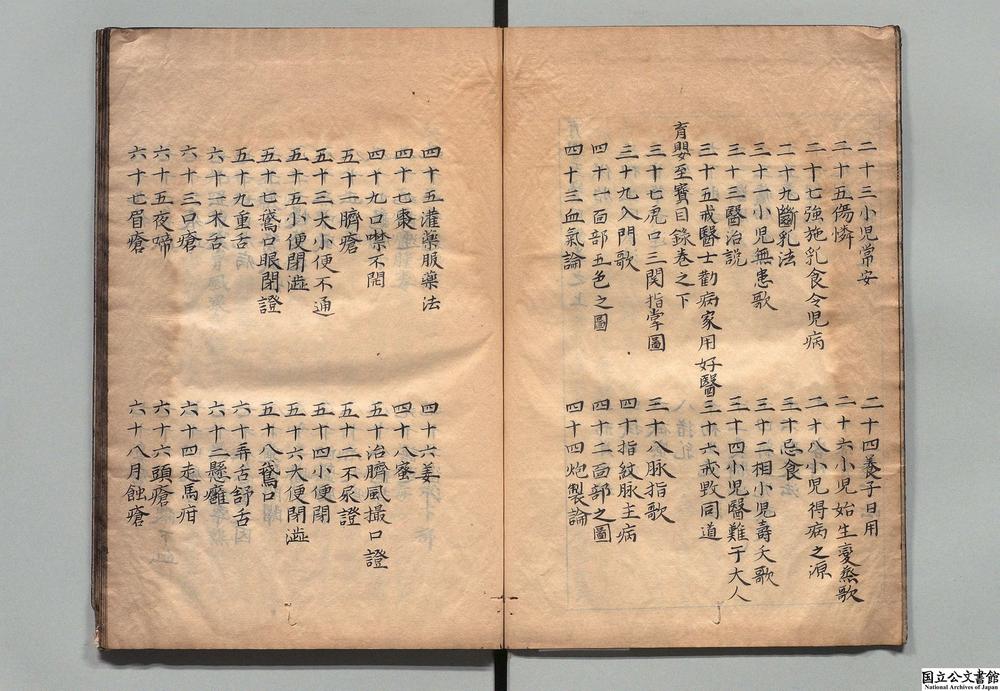 二十三小児常安
二十四養子日用
二十五傷憐
二十六小児始生變蒸歌
二十七強施乳食令児病
二十八小児得病之源
二十九斷乳法
三十忌食
三十一小児無患歌
三十二相小児壽夭歌
三十三醫治説
三十四小児醫難于大人
三十五戒醫士勸病家用好醫
三十六戒毀同道
育嬰至寶目錄卷之下
三十七虎口三関指掌圖
三十八脉指歌
三十九入門歌
四十指紋脉主病
四十一面部五色之圖
四十二面部之圖
四十三血氣論
四十四炮製論
四十五灌藥服藥法
四十六姜
四十七棗
四十八蜜
四十九口噤不開
五十治臍風撮口證
五十一臍瘡
五十二不尿證
五十三大小便不通
五十四小便閉
五十五小便閉澁
五十六大便閉澁
五十七鵞口眼閉證
五十八鵞口
五十九重舌
六十弄舌舒舌因
六十一木舌
六十二懸癰
六十三口瘡
六十四走馬疳
六十五夜啼
六十六頭瘡
六十七眉瘡
六十八月蝕瘡
国立公文書館
National Archives of Japan